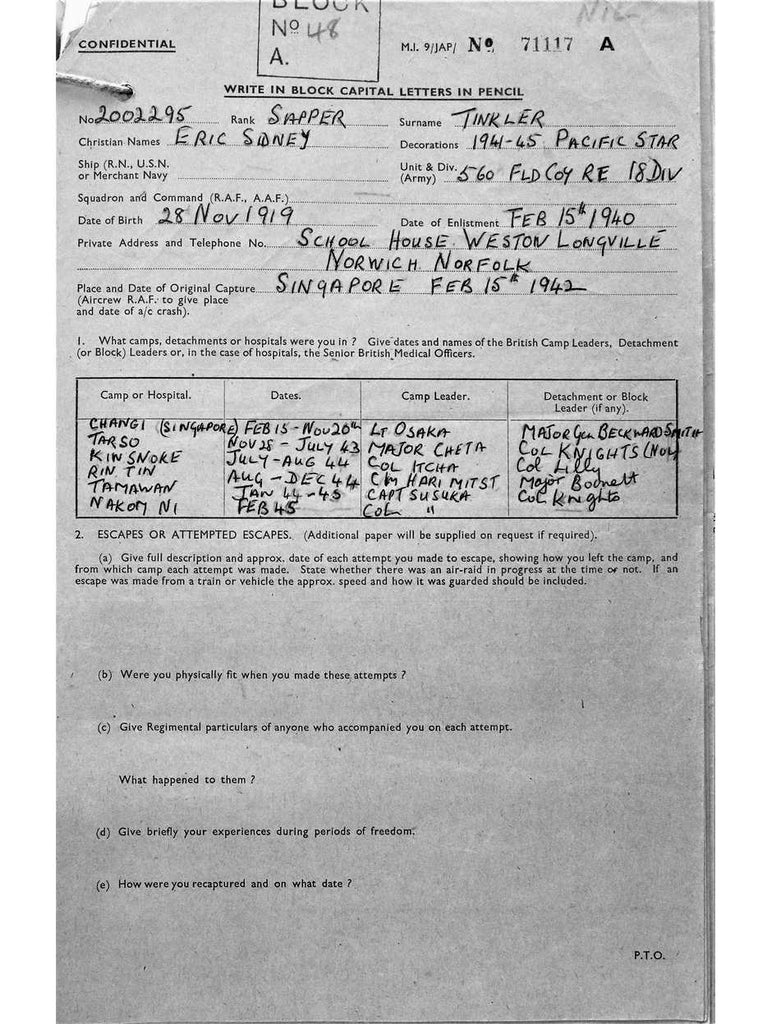 BLOCK
Nº 48
A.
NIL
CONFIDENTIAL
M.I. 9/JAP/ Nº 71117 A
WRITE IN BLOCK CAPITAL LETTERS IN PENCIL
No. 2002295 Rank SAPPER Surname TINKLER
Christian Names ERIC SIDNEY Decorations 1941-45 PACIFIC STAR
Ship (R.N., U.S.N.
or Merchant Navy
Unit & Div. 560 FLD COY RE 18 DIV
(Army)
Squadron and Command (R.A.F., A.A.F.)
Date of Birth 28 NOV 1919 Date of Enlistment FEB 15th 1940
Private Address and Telephone No. SCHOOL HOUSE WESTON LONGVILLE
NORWICH NORFOLK
Place and Date of Original Capture SINGAPORE FEB 15th 1942
(Aircrew R.A.F. to give place
and date of a/c crash).
1. What camps, detachments or hospitals were you in ? Give dates and names of the British Camp Leaders, Detachment
(or Block) Leaders or, in the case of hospitals, the Senior British Medical Officers.
Camp or Hospital. Dates. Camp Leader. Detachment or Block
Leader (if any).
CHANGI (SINGAPORE) FEB 15 - NOV 20th LT OSAKA MAJOR Gen BECKWARD SMITH
TARSO NOV 28 - JULY 43 MAJOR CHETA COL KNIGHTS
KINSNOKE JULY - AUG 44 COL ITCHA Col Lilly
RIN TIN AUG - DEC 44 C/M HARI MITST Major Bodnett
TAMAWAN JAN 44-45 CAPT SUSUKA Col Knights
NAKOM NI FEB 45 COL "
2. ESCAPES OR ATTEMPTED ESCAPES. (Additional paper will be supplied on request if required).
(a) Give full description and approx. date of each attempt you made to escape, showing how you left the camp, and
from which camp each attempt was made. State whether there was an air-raid in progress at the time or not. If an
escape was made from a train or vehicle the approx. speed and how it was guarded should be included.
(b) Were you physically fit when you made these attempts ?
(c) Give Regimental particulars of anyone who accompanied you on each attempt.
What happened to them ?
(d) Give briefly your experiences during periods of freedom.
(e) How were you recaptured and on what date ?
P.T.O.